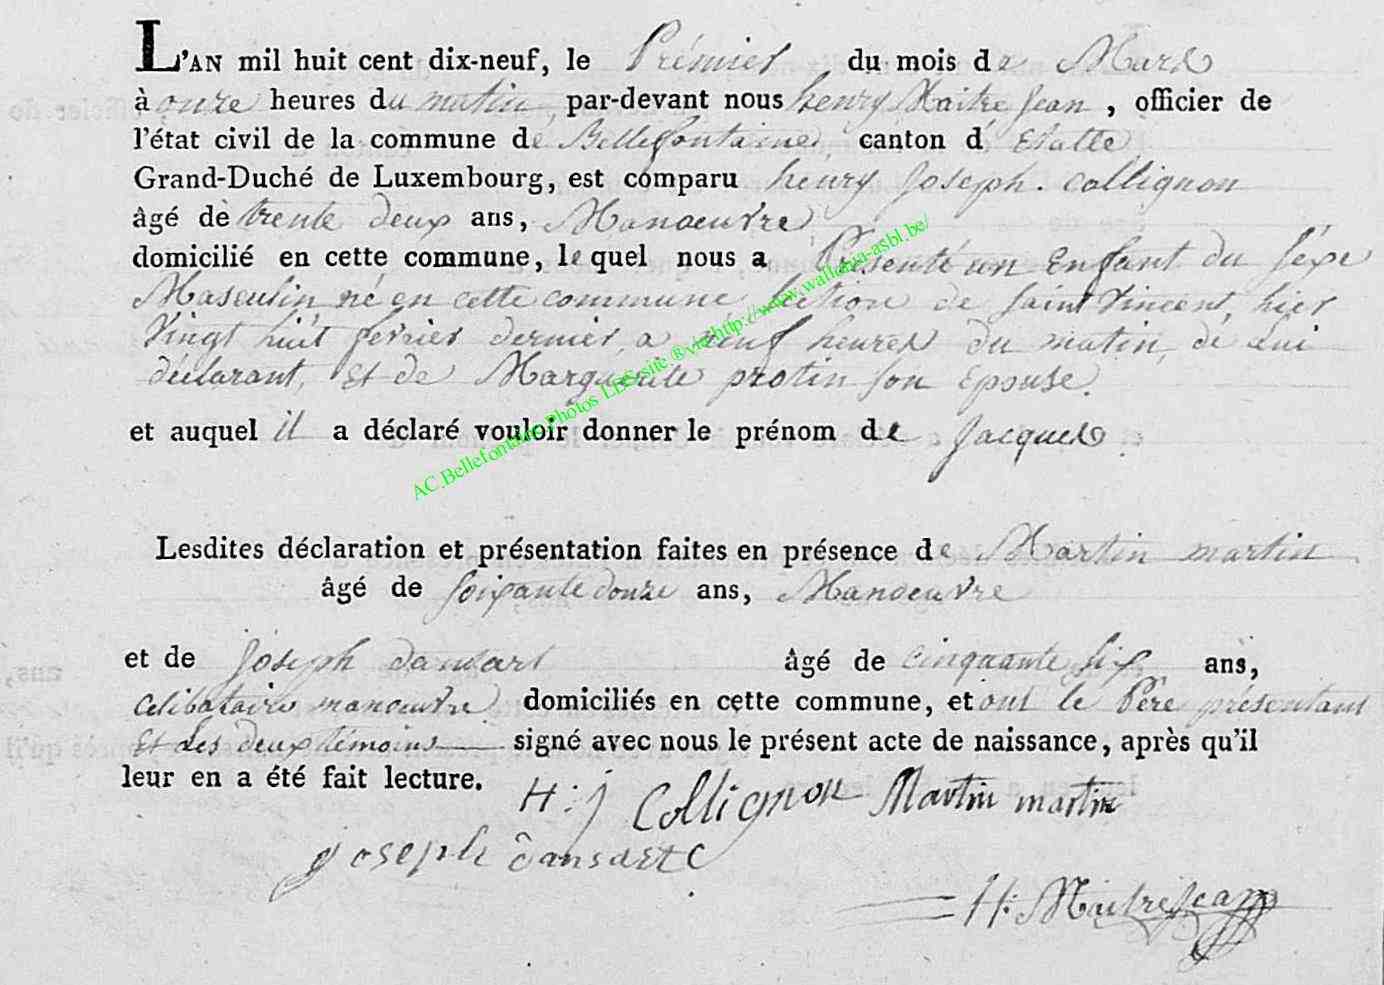 L'AN mil huit cent dix-neuf, le Prémier du mois de Mars
à onze heures du matin, par-devant nous henry Maitre Jean, officier de
l'état civil de la commune de Bellefontaine, canton d' Etalle
Grand-Duché de Luxembourg, est comparu henry Joseph. Collignon
âgé de trente deux ans, Manoeuvre
domicilié en cette commune, le quel nous a Présenté un Enfant du séxe
Masculin, né en cette commune Section de Saint Vincent, hier
Vingt huit février dernier, a neuf heures du matin, de Lui
déclarant, Et de Marguerite protin son Epouse.
et auquel il a déclaré vouloir donner le prénom de Jacques.
Lesdites déclaration et présentation faites en présence de Martin martin
âgé de soixante douze ans, Manoeuvre
et de Joseph dansart âgé de cinquante six ans,
Celibataire manoeuvre domiciliés en cette commune, et ont le Père présentant
Et Les deux témoins signé avec nous le présent acte de naissance, après qu'il
leur en a été fait lecture.
H:j Collignon Martin martin
joseph dansart
H: Maitrejean
AC Bellefontaine Photos LDS site ® via http://www.wallonia-asbl.be/